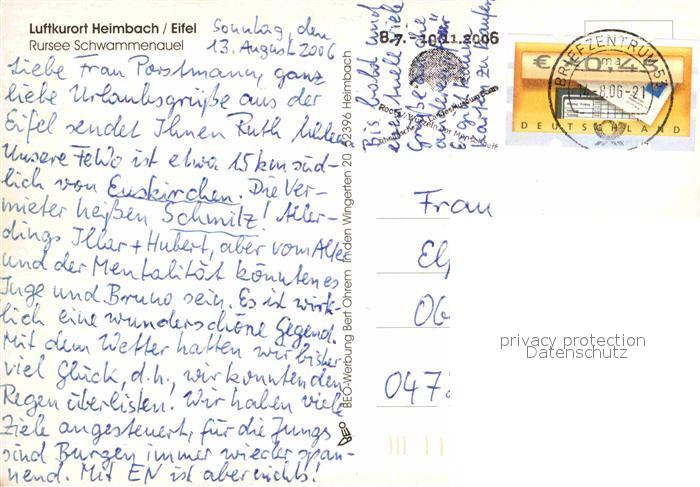 Luftkurort Heimbach / Eifel
Rursee Schwammenauel
Sonntag, dem
13. August 2006
Liebe Frau Porstmann, ganz
liebe Urlaubsgrüße aus der
Eifel sendet Ihnen Ruth
Unsere FeWo ist etwa 15 km süd-
lich von Euskirchen. Die Ver-
mieter heißen Schmitz! Aller-
dings Illar + Hubert, aber vom Alter
und der Mentalität könnten es
Inge und Bruno sein. Es ist wirk-
lich eine wunderschöne Gegend.
Mit dem Wetter hatten wir bisher
viel Glück, d.h., wir konnten den
Regen überlisten. Wir haben viele
Ziele angesteuert, für die Jungs
sind Burgen immer wieder span-
nend. Mit EN ist aber nichts!
BEO
BEO-Werbung Bert Ohrem Im den Wingerten 20 52396 Heimbach
Bis bald und
viele
Grüße an die
Es gibt
Karten zu kaufen
8.7. - 10.11.2006
BRIEFZENTRUM 53
ma
14.-8.06-21
DEUTSCHLAND
Frau
El
06
047
privacy protection
Datenschutz